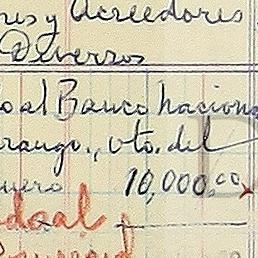 res y Acreedores
Diversos
al Banco nacion
rango., vto. del
10,000.00